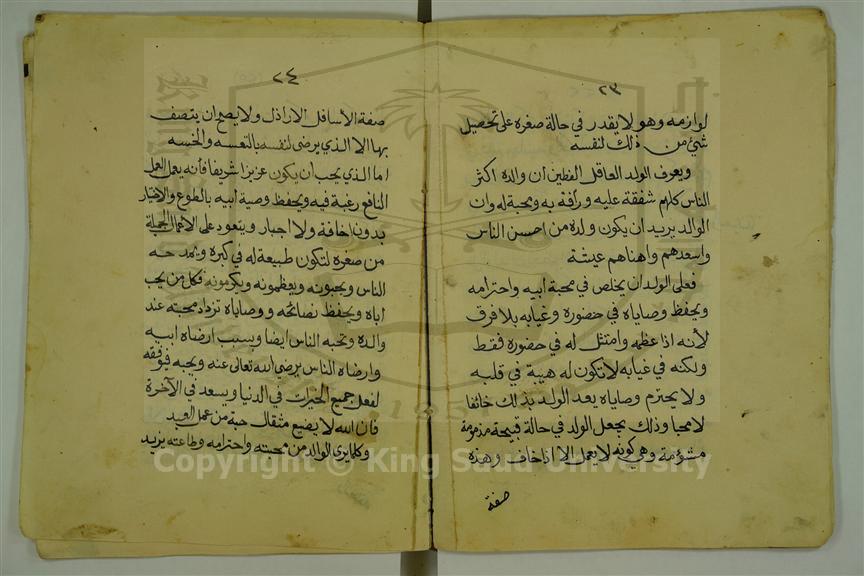 ٢٣
لوازمه وهو لا يقدر في حالة صغره على تحصيل
شيء من ذلك لنفسه
ويعرف الولد العاقل الفطين ان والده اكثر
الناس كلهم شفقة عليه ورافة به ومحبة له وان
الوالد يريد ان يكون ولده من احسن الناس
واسعدهم واهناهم عيشة
فعلى الولد ان يخلص في محبة ابيه واحترامه
ويحفظ وصاياه في حضوره وغيابه بلا فرق
لأنه اذا عظمه وامتثل له في حضوره فقط
ولكنه في غيابه لا تكون له هيبة في قلبه
ولا يحترم وصاياه يعد الولد بذلك خائفا
لا محبا وذلك يجعل الولد في حالة قبيحة مذمومة
مشؤمة وهي كونه لا يعمل الا اذا خاف وهذه
صفة
٢٤
صفة الأسافل الاراذل ولا يصح ان يتصف
بها الا الذي يرضى لنفسه بالتعسه والخسه
اما الذي يحب أن يكون عزيزا شريفا فأنه يعمل العمل
النافع رغبة فيه ويحفظ وصية ابيه بالطوع والاختيار
بدون اخافة ولا اجبار ويتعود على الاعمال الجميلة
من صغره لتكون طبيعة له في كبره ويمدحه
الناس ويحبونه ويعظمونه ويكرمونه فكل من يحب
اباه ويحفظ نصائحه ووصاياه تزداد محبته عند
والده وتحبه الناس ايضا وبسبب ارضاه ابيه
وارضاه الناس يرضي الله تعالى عنه ويحبه فيوفقه
لفعل جميع الخيرات في الدنيا ويسعد في الآخرة
فان الله لا يضيع مثقال حبة من عمل العبد
وكلما يرى الوالد من محبته واحترامه وطاعته يزيد
Copyright © King Saud University